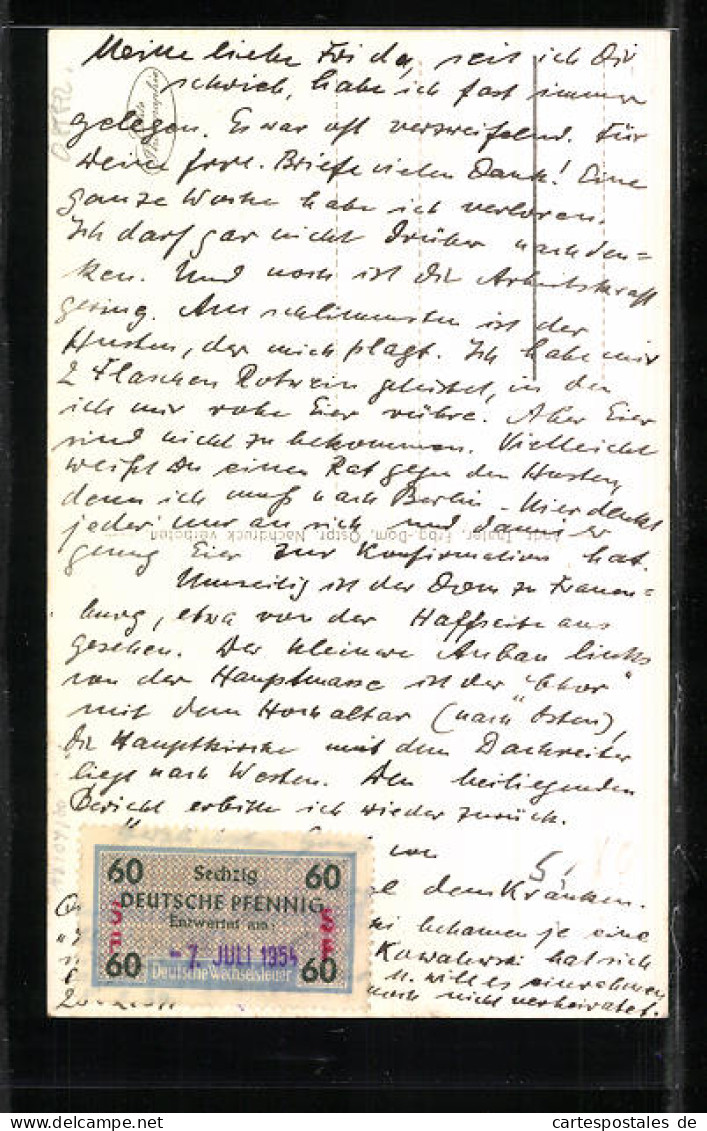 Meine liebe Frida, seit ich Dir
schrieb, habe ich fast immer
gelegen. Es war oft verzweifelnd. Für
Deine frdl. Briefe vielen Dank! Eine
ganze Woche habe ich verloren.
Ich darf gar nicht drüber nachden=
ken. Und noch ist die Arbeitskraft
gering. Am schlimmsten ist der
Husten, der mich plagt. Ich habe mir
2 Flaschen Rotwein geleistet, in den
ich mir rohe Eier rühre. Aber Eier
sind nicht zu bekommen. Vielleicht
weißt Du einen Rat gegen den Husten,
denn ich muß nach Berlin. Hier denkt
jeder nur an sich und damit er
genug Eier zur Konfirmation hat.
Andr. Thater, Frbg.-Dom, Ostpr. Nachdruck verboten
Umseitig ist der Dom zu Frauen=
burg, etwa von der Haffseite aus
gesehen. Der kleinere Anbau links
von der Hauptmasse ist der "Chor"
mit dem Hochaltar (nach Osten),
die Hauptkirche mit dem Dachreiter
liegt nach Westen. Den beiliegenden
Bericht erbitte ich wieder zurück.
von
dem Kranken.
bekamen je eine
Kowalewski hat sich
u. will es einrahmen
noch nicht verheiratet.
60 Sechzig 60
DEUTSCHE PFENNIG
Entwertet am:
-7. JULI 1954
60 Deutsche Wechselsteuer 60
cartespostales de